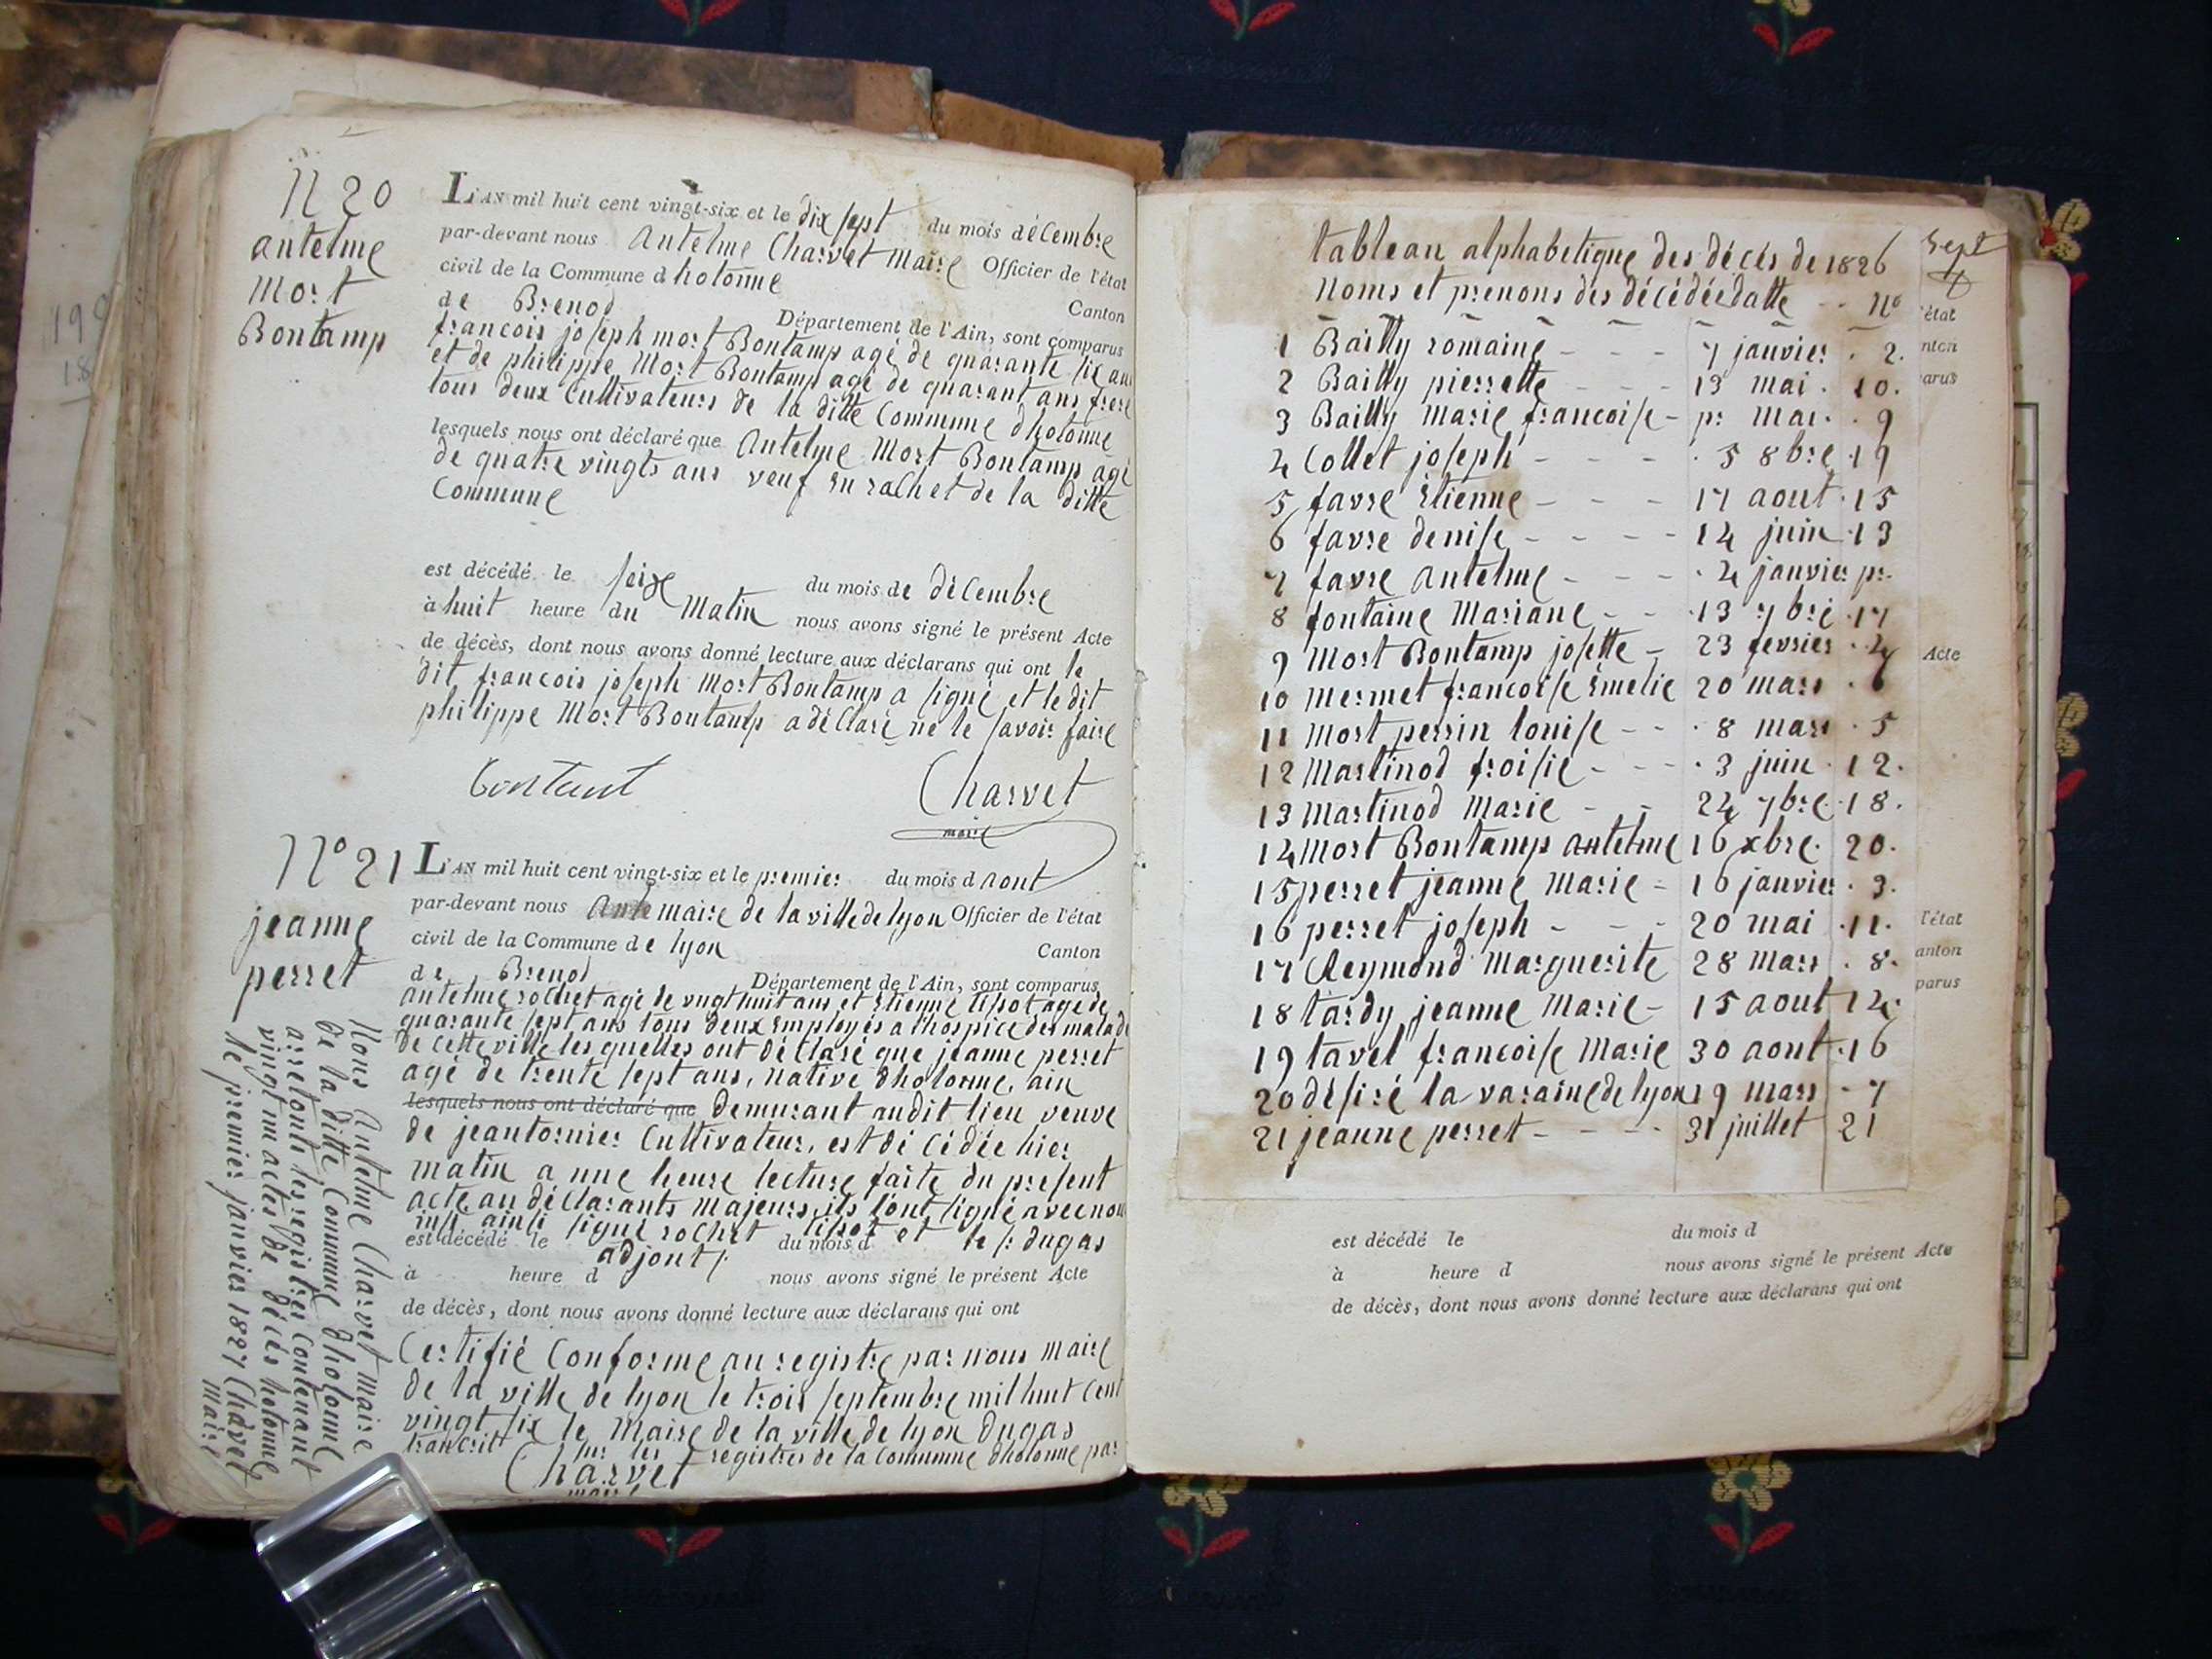 N 20
antelme
Mort
Bontamp
L'AN mil huit cent vingt-six et le dix sept du mois décembre
par-devant nous Antelme Charvet Maire Officier de l'état
civil de la Commune d hotonne Canton
de Brenod Département de l'Ain, sont comparus
francois joseph mort Bontamp agé de quarante six ans
et de philippe Mort Bontamp agé de quarant ans frere
tous deux Cultivateurs de la ditte Commune dhotonne
lesquels nous ont déclaré que Antelme Mort Bontamp agé
de quatre vingts ans veuf en rachet de la ditte
Commune
est décédé le seize du mois de décembre
à huit heure du Matin nous avons signé le présent Acte
de décès, dont nous avons donné lecture aux déclarans qui ont le
dit francois joseph Mort Bontamp a signé et le dit
philippe Mort Bontamp a déclaré ne le savoir faire
Charvet
maire
N° 21
jeanne
perret
L'AN mil huit cent vingt-six et le premier du mois d aout
par-devant nous Ante maire de la ville de lyon Officier de l'état
civil de la Commune de lyon Canton
de Brenod Département de l'Ain, sont comparus
antelme rochet agé de vingt huit ans et Etienne tissot agé de
quarante sept ans tous deux Employés a lhospice des malade
de cette ville les quelles ont déclaré que jeanne perret
agé de trente sept ans, native dhotonne, ain
lesquels nous ont déclaré que demurant audit lieu veuve
de jean tornier Cultivateur, est dé cédée hier
matin a une heure lecture faite du present
acte au déclarants majeurs, ils l'ont signé avec nous
ainsi signé rochet tissot et le sr dugas
est décédé le adjont du mois d
à heure d nous avons signé le présent Acte
de décès, dont nous avons donné lecture aux déclarans qui ont
Certifié Conforme au registre par nous maire
de la ville de lyon le trois septembre mil huit Cent
vingt six le Maire de la ville de lyon Dugas
trancrit sur les registres de la Commune dhotonne par
Charvet
maire
Nous Antelme Charvet maire
de la ditte Commune dhotonne
arretonts les registres Contenant
vingt un actes de décés hotonne
le premier janvier 1827 Charvet
maire
tableau alphabetique des décés de 1826
Noms et prenons des décédée datte N°
1 Bailly romaine - - - 7 janvier . 2.
2 Bailly pierrette - - - 13 mai . 10.
3 Bailly marie francoise - pr mai . 9
4 Collet joseph - - - . 5 8bre . 19
5 favre Etienne - - - 17 aout . 15
6 favre denise - - - - 14 juin . 13
7 favre antelme - - - . 4 janvier pr.
8 fontaine Mariane - - . 13 7bre . 17
9 Mort Bontamp josette - 23 fevrier . 4
10 Mermet francoise Emelie 20 mars . 6
11 Mort perrin louise - - . 8 mars . 5
12 Martinod froisie - - - . 3 juin . 12.
13 Martinod Marie - - 24 7bre . 18.
14 Mort Bontamp antelme 16 xbre. 20.
15 perret jeanne Marie - 16 janvier . 3.
16 perret joseph - - - 20 mai . 11.
17 Reymond Marguerite 28 Mars . 8.
18 tardy jeanne Marie - 15 aout 14.
19 tavel francoise Marie 30 aout . 16
20 désiré la varaine de lyon 19 mars - 7
21 jeanne perret - - - - 31 juillet 21
Sept
'état
nton
arus
Acte
l'état
anton
parus
est décédé le du mois d
à heure d nous avons signé le présent Acte
de décès, dont nous avons donné lecture aux déclarans qui ont